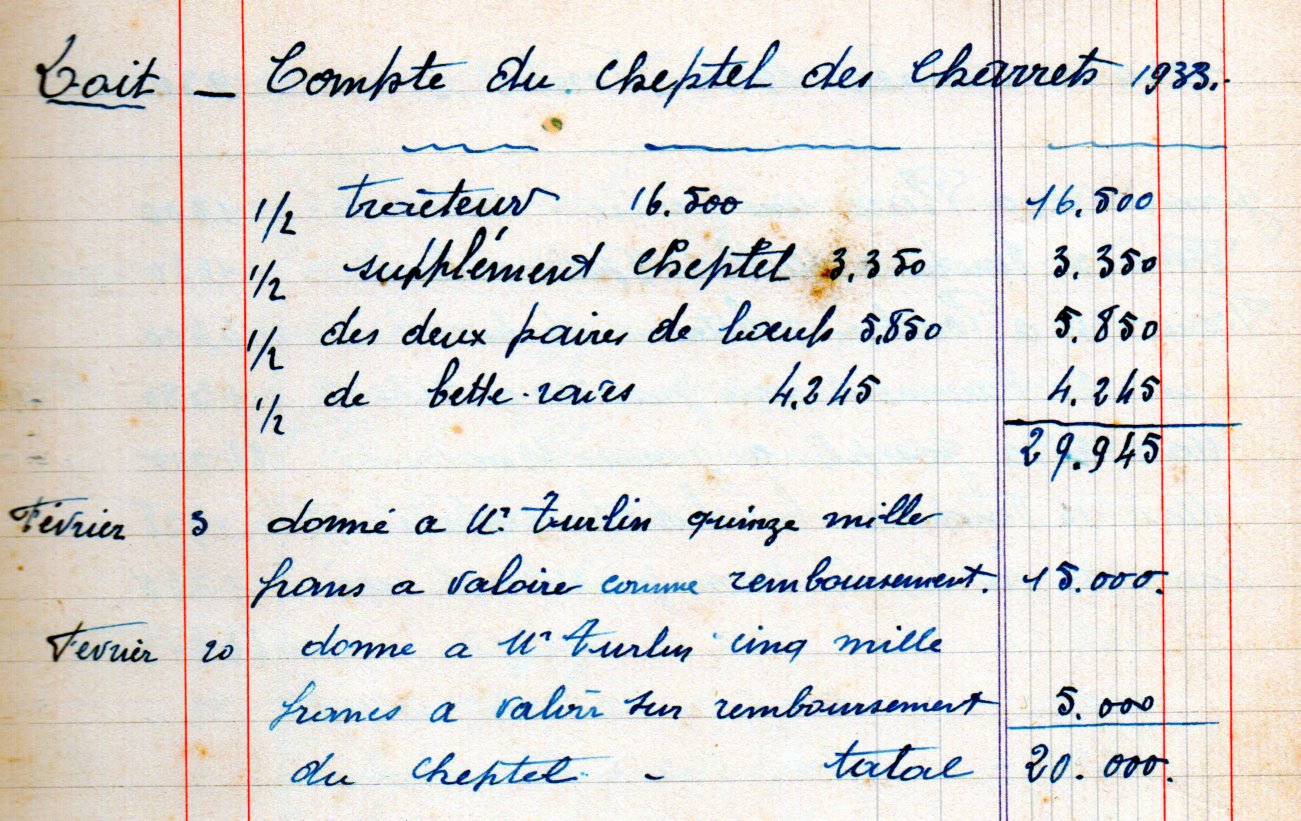 Doit - Compte du cheptel des Charrets 1933.
1/2 tracteur 16.500 16.500
1/2 supplément cheptel 3.350 3.350
1/2 des deux paires de bœufs 5.850 5.850
1/2 de bette-raves 4.245 4.245
29.945
Février 3 donné a Mr Turlin quinze mille
frans a valoire comme remboursement. 15.000.
Fevrier 20 donne a Mr Turlin cinq mille
francs a valoir sur remboursement 5.000
du cheptel - tatal 20.000.